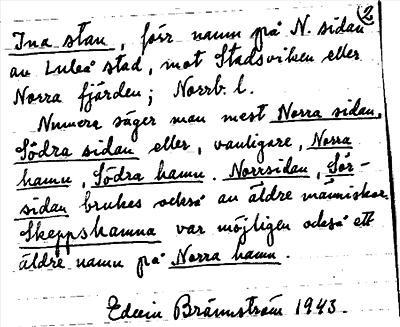 2
Ina stan, förr namn på N. sidan
av Luleå stad, mot Stadsviken eller
Norra fjärden; Norrb. l.
Numera säger man mest Norra sidan,
Södra sidan eller, vanligare, Norra
hamn, Södra hamn. Norrsidan, Sör-
sidan brukes också av äldre människor.
Skeppshamna var möjligen också ett
äldre namn på Norra hamn.
Edvin Brännström 1943.